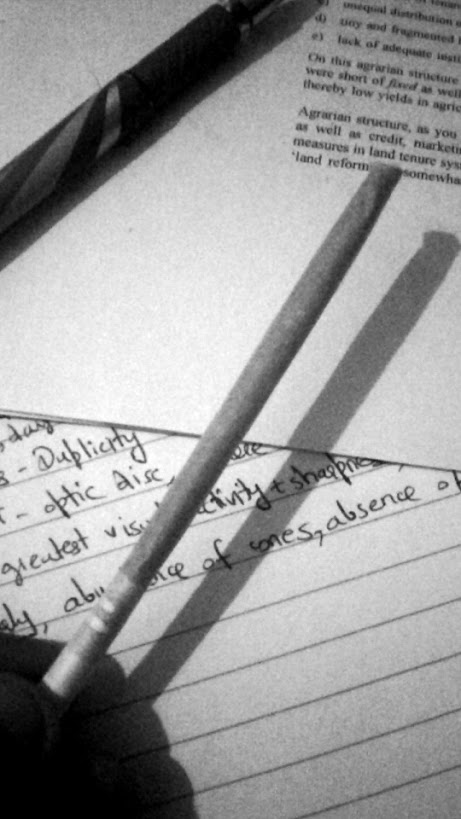 unequal distribution o
d) tiny and fragmented
e) lack of adequate insti
On this agrarian structure
were short of fixed as well
thereby low yields in agric
Agrarian structure, as you
as well as credit, marketi
measures in land tenure sys
'land reform somewha
- Duplicity
- optic disc, ere
greatest vis ctivity + sharpness,
ely, ab ce of cones, absence of